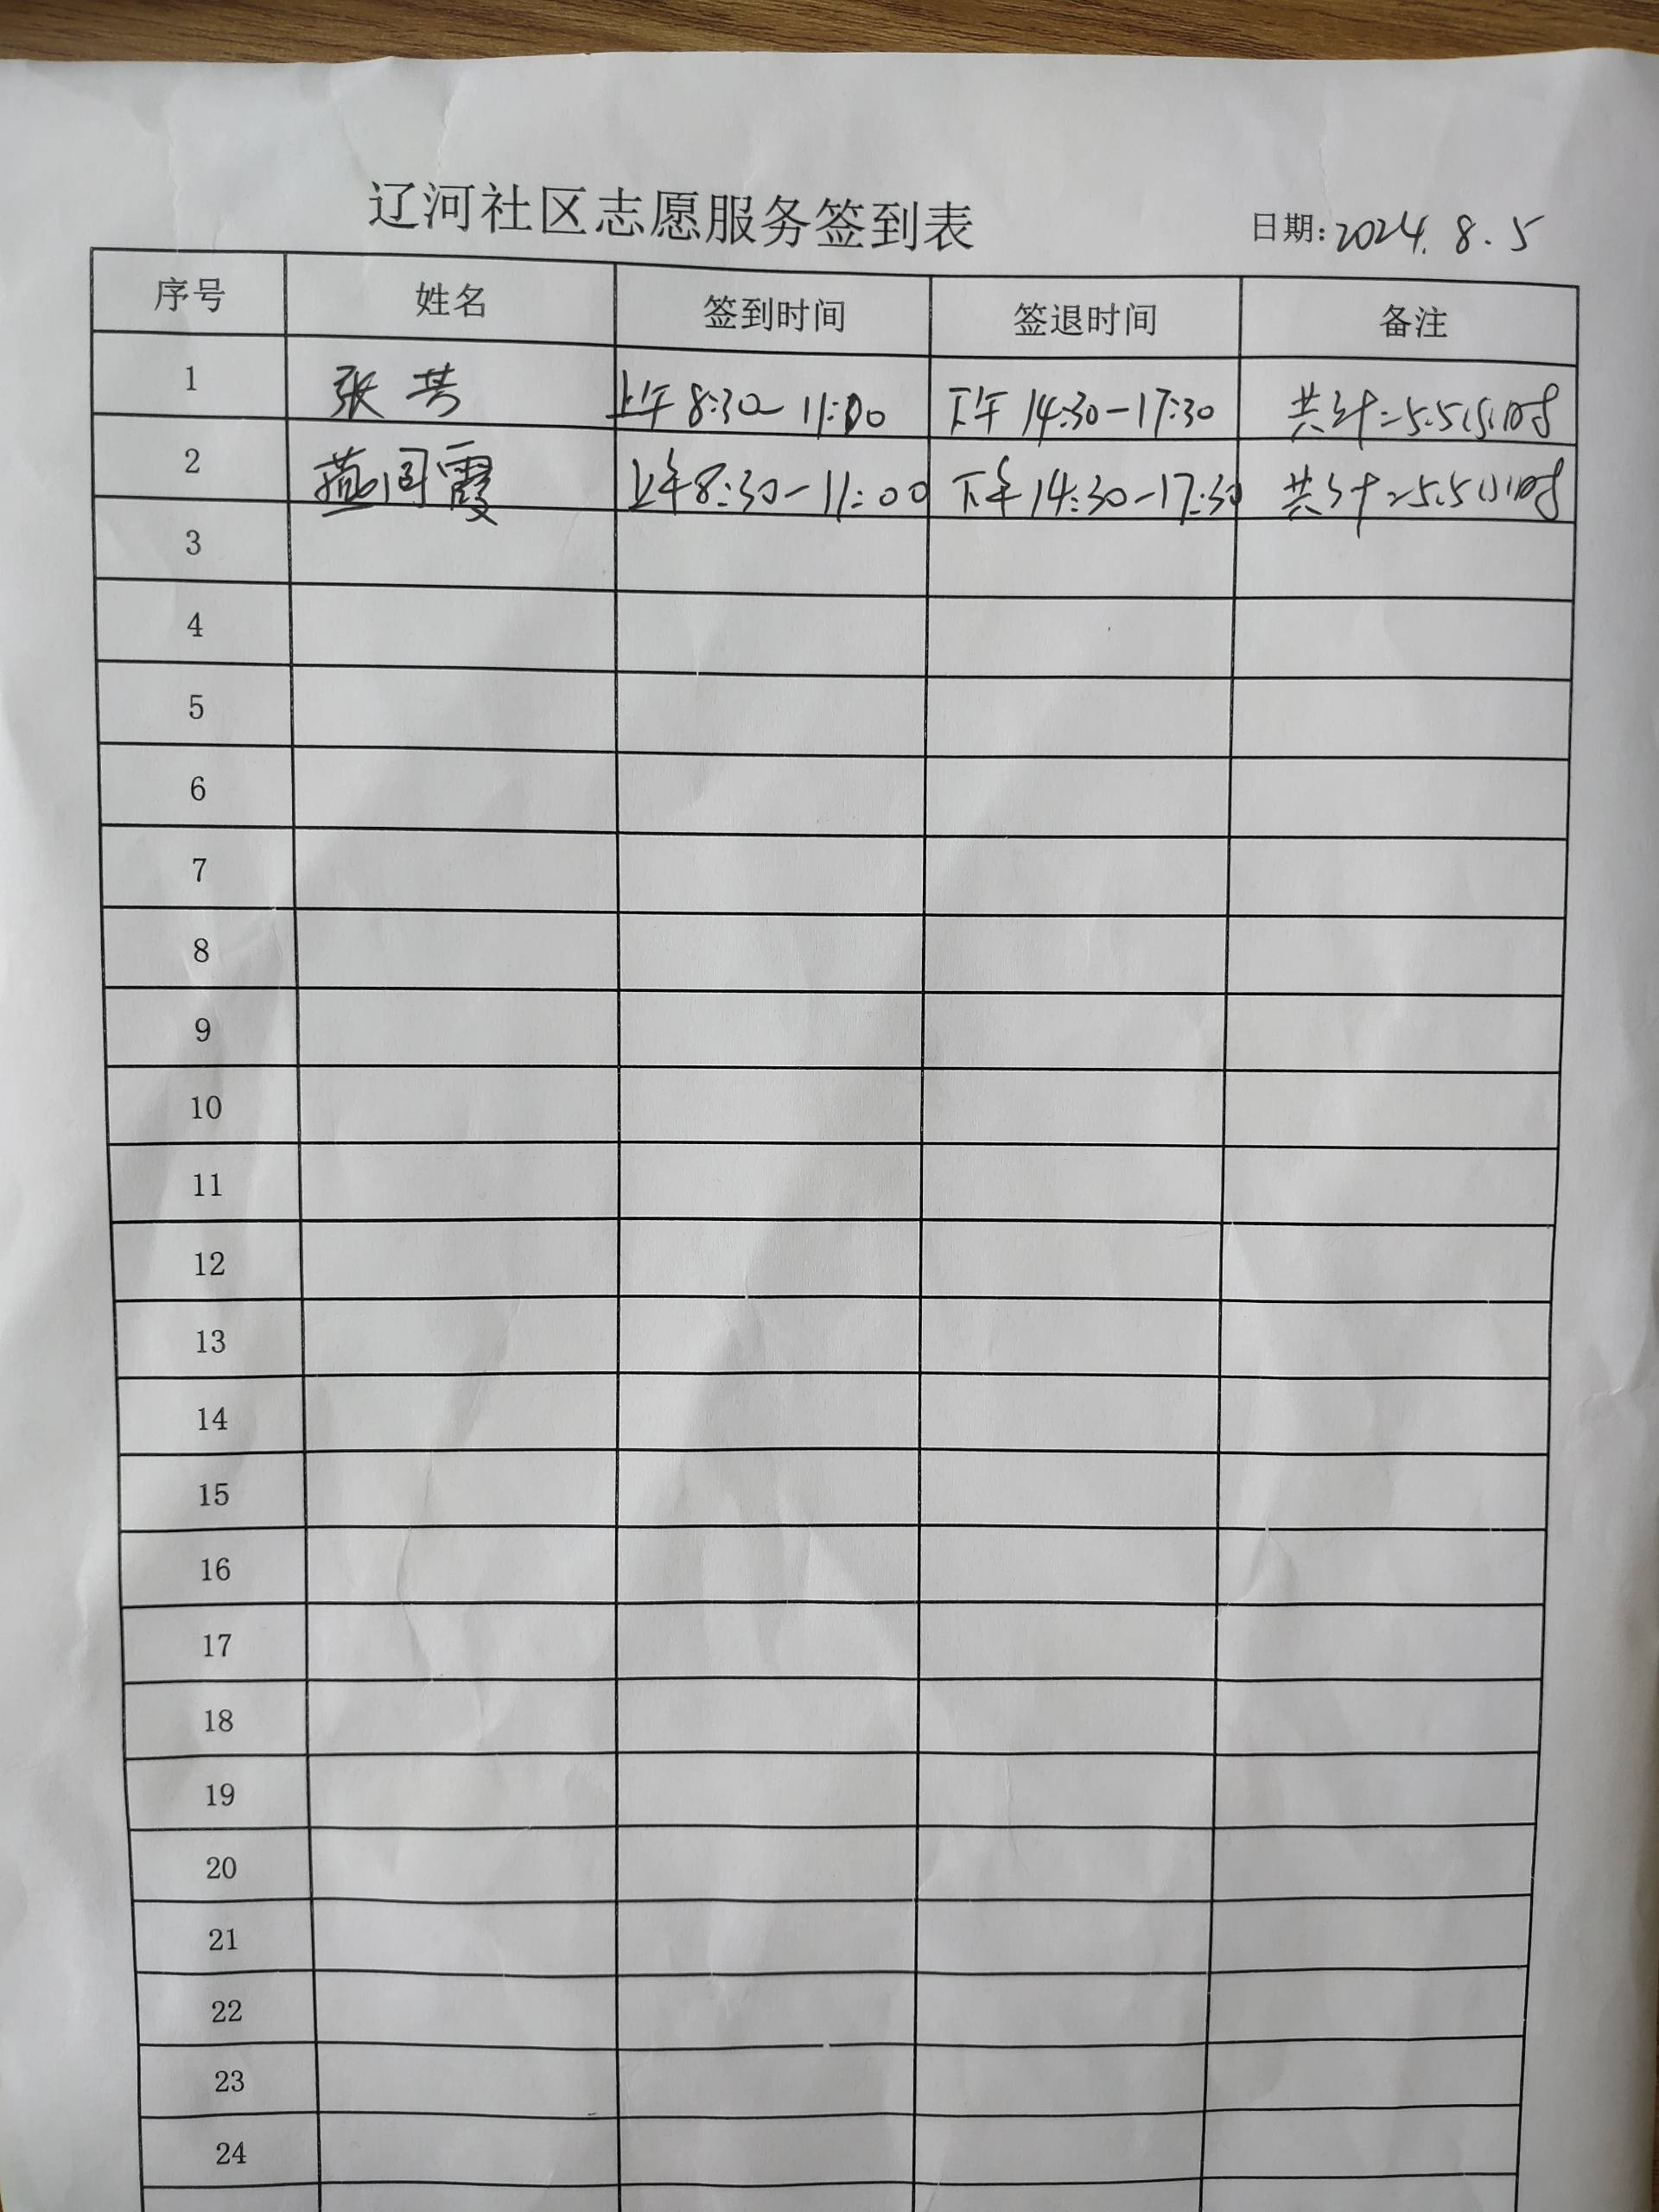 辽河社区志愿服务签到表 日期:2024.8.5
序号 姓名 签到时间 签退时间 备注
1 张芳 上午8:30-11:00 下午14:30-17:30 共计=5.5小时
2 霞 上午8:30-11:00 下午14:30-17:30 共计=5.5小时
3
4
5
6
7
8
9
10
11
12
13
14
15
16
17
18
19
20
21
22
23
24